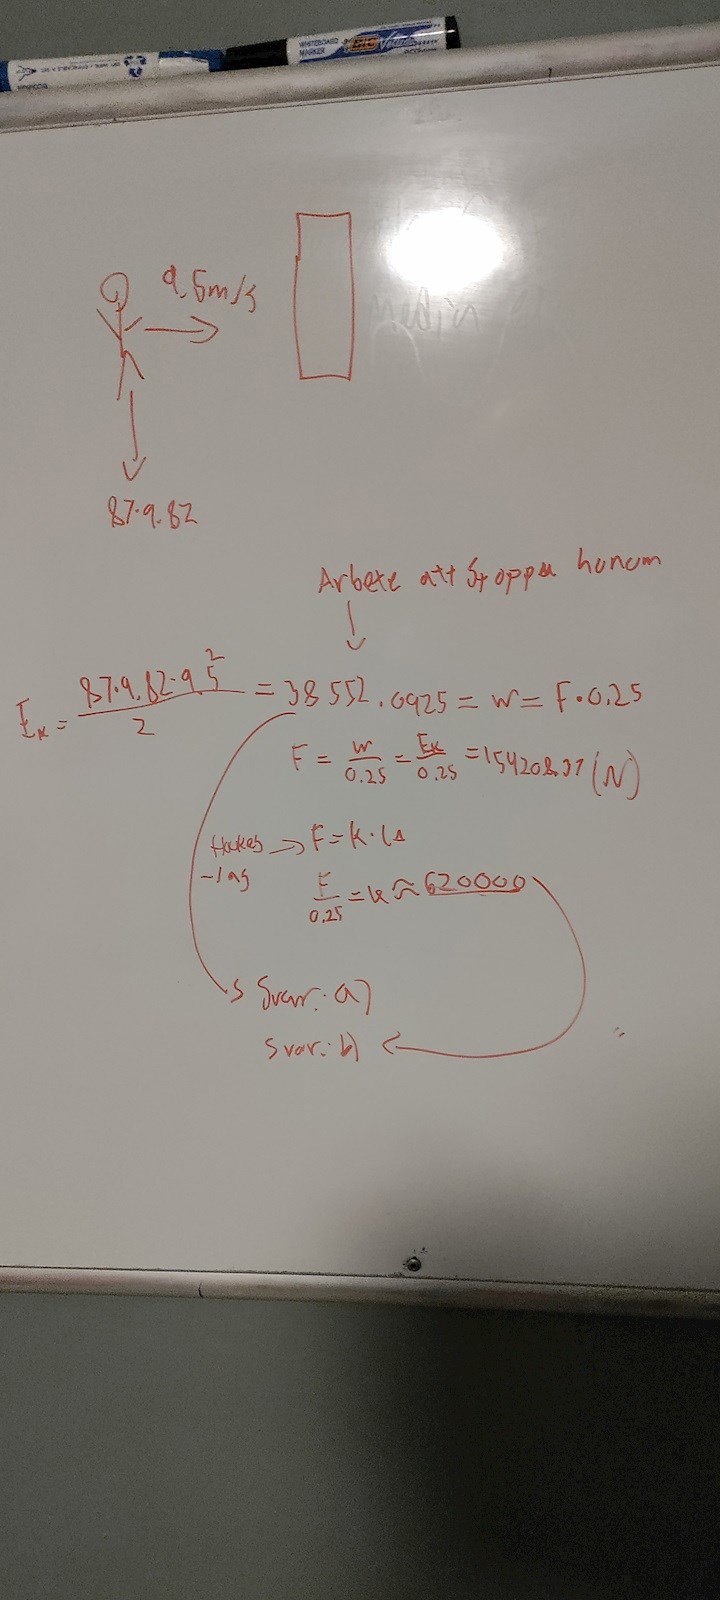 WHITEBOARD
MARKER
BIC
9.5m/s
87.9.82
Arbete att stoppa honom
Ek = 87.9.82.9.5² / 2 = 38552.0925 = W = F.0.25
F = W/0.25 = Ek/0.25 = 154208.37 (N)
Hookes → F = k.
-lag
F/0.25 = k ≈ 620000
Svar: a)
Svar: b)